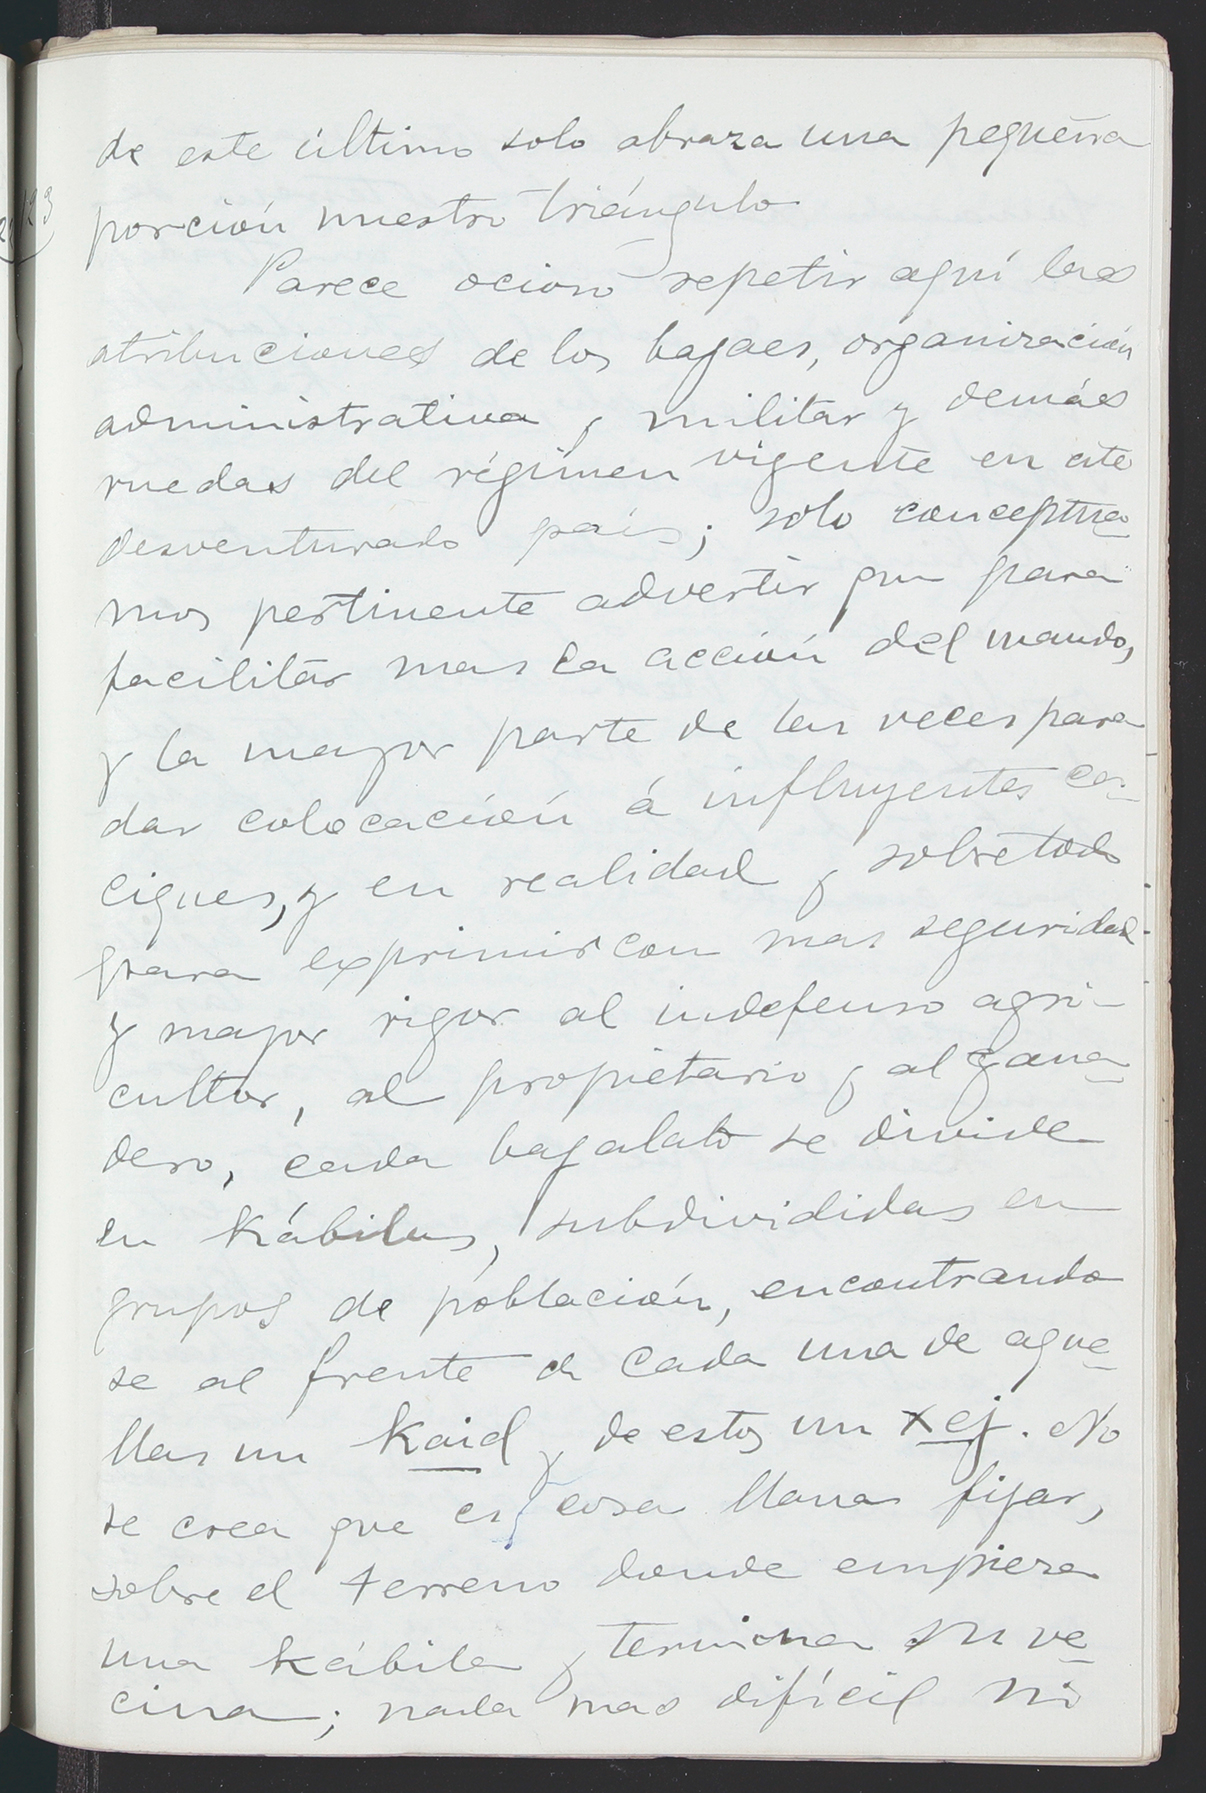 de este último solo abraza una pequeña
123
porción nuestro triángulo
Parece ocioso repetir aquí las
atribuciones de los bajaes, organización
administrativa y militar y demás
ruedas del régimen vigente en este
desventurado país; solo conceptua_
mos pertinente advertir que para
facilitar mas la acción del mando,
y la mayor parte de las veces para
dar colocación á influyentes ca_
ciques, y en realidad y sobre todo
para exprimir con mas seguridad
y mayor rigor al indefenso agri-
cultor, al propietario y al gana_
dero, cada bajalato se divide
en kábilas, subdivididas en
grupos de población, encontrando
se al frente de cada una de aque_
llas un kaid y de estos un xej. No
se crea que es cosa llana fijar,
sobre el terreno donde empieza
una kábila y termina su ve_
cina; nada mas difícil ni